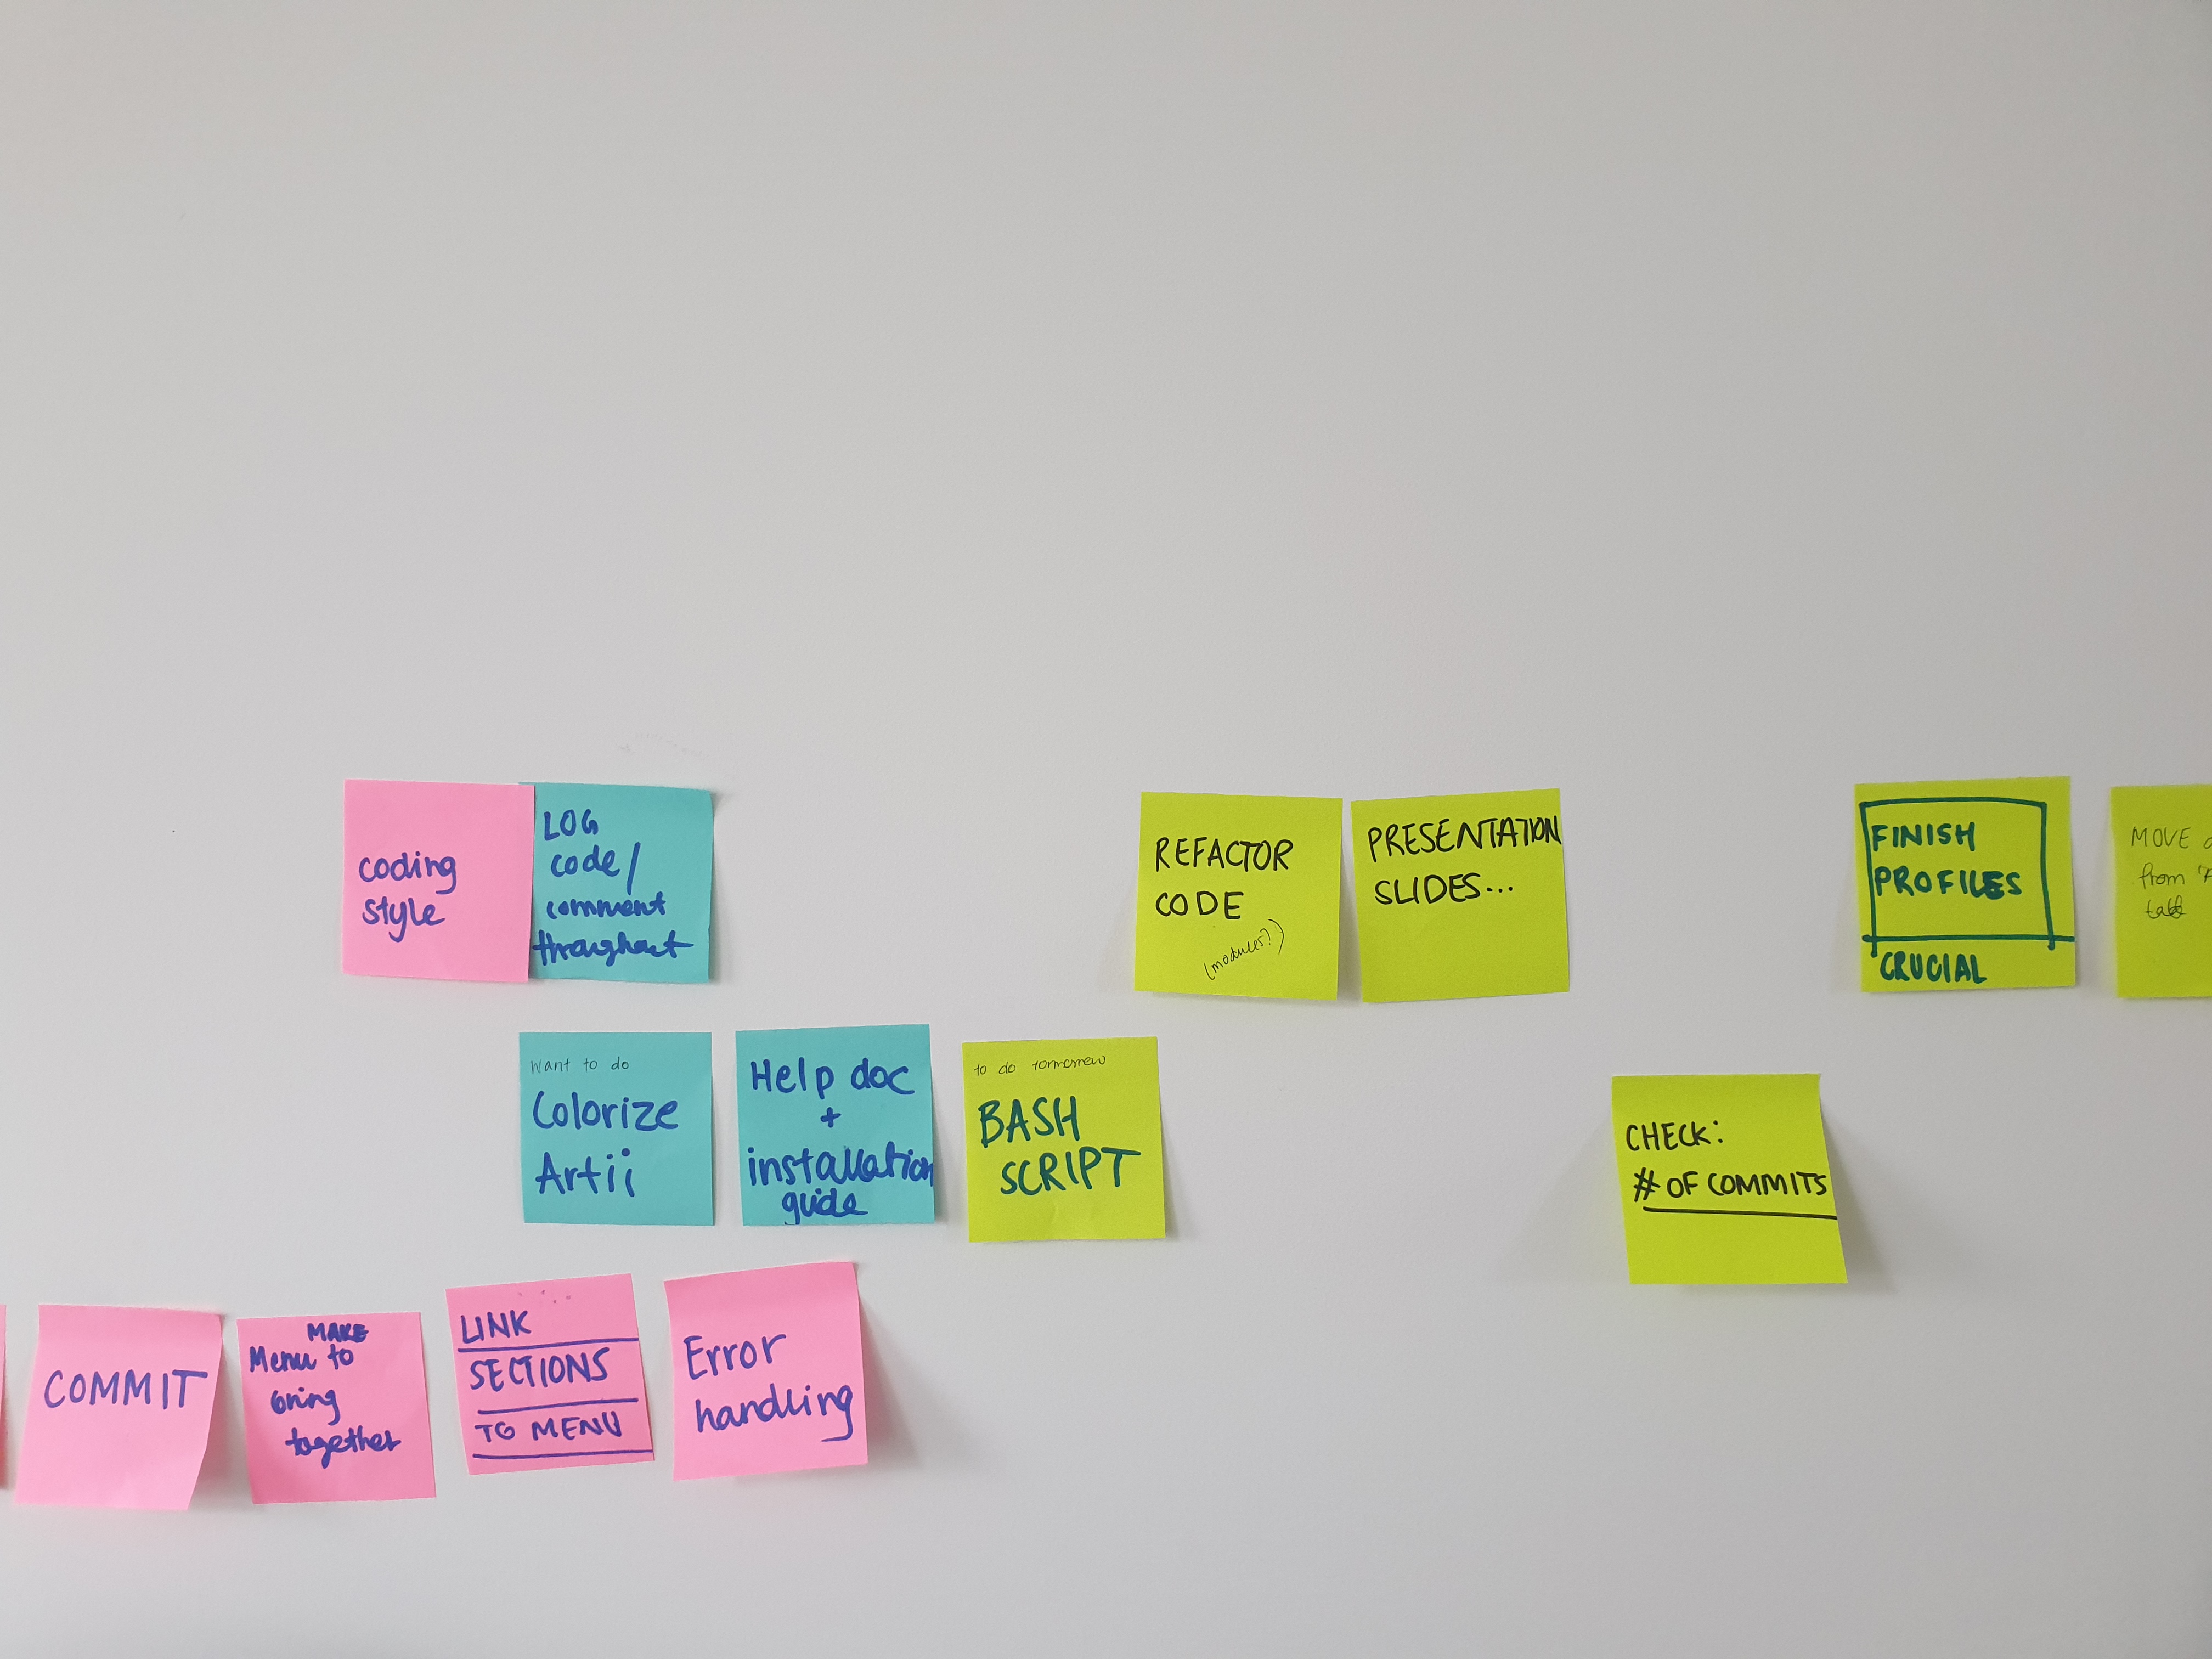 coding
style
LOG
code/
comment
throughout
REFACTOR
CODE
(modules?)
PRESENTATION
SLIDES...
FINISH
PROFILES
CRUCIAL
MOVE
from
Want to do
Colorize
Artii
Help doc
+
installation
guide
to do tomorrow
BASH
SCRIPT
CHECK:
# OF COMMITS
COMMIT
MAKE
Menu to
bring
together
LINK
SECTIONS
TO MENU
Error
handling